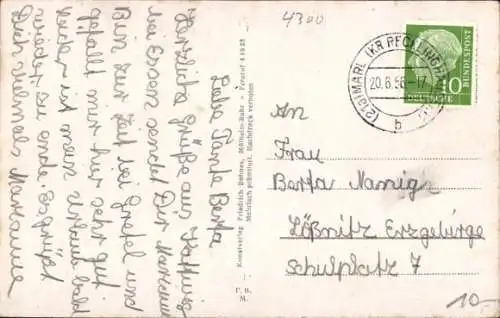 4300
Liebe Tante Berta
Herzliche Grüße aus
bei Essen sendet Dir Marianne
Bin zur Zeit bei Gretel und
gefällt mir hier sehr gut
leider ist mein Urlaub bald
wieder zu ende. Es grüßt
Dich vielmals Marianne
Kunstverlag Friedrich
Mülheim-Ruhr
Fernruf 4 18 25
Mehrfach prämiiert. Nachdruck verboten
F. B.
M.
(21a) MARL (KR RECKLINGH)
20.6.56-17
b
DEUTSCHE BUNDESPOST
10
An
Frau
Berta
Lößnitz Erzgebirge
Schulplatz 7
10-